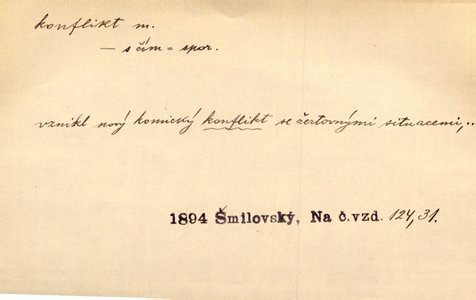 konflikt m.
— s čím = spor.
vznikl nový komický konflikt se žertovnými situacemi,..
1894 Šmilovský, Na č.vzd. 124,31.